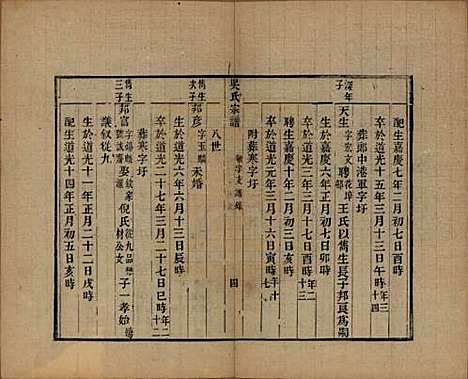 配生嘉慶七年二月初七日酉時
卒於道光十五年三月十三日午時年三十四
葬郎中港軍字圩
深年子天生字宏文號花墇聘王氏以雋生長子邦良爲嗣
生於嘉慶六年正月初七日卯時
聘生嘉慶十年二月初十日酉時
卒於道光三年三月十七日酉時年二十三
卒於道光元年三月十六日寅時年十七
附葬寒字圩
吳氏宗譜
四
八世
雋生次子邦彥字玉麟未婚
生於道光六年六月十三日辰時
卒於道光二十七年三月二十七日巳時年二十二
葬寒字圩
雋生三子邦富娶倪氏子一孝始
議敘從九
生於道光十一年正月二十二日戌時
配生道光十四年正月初五日亥時